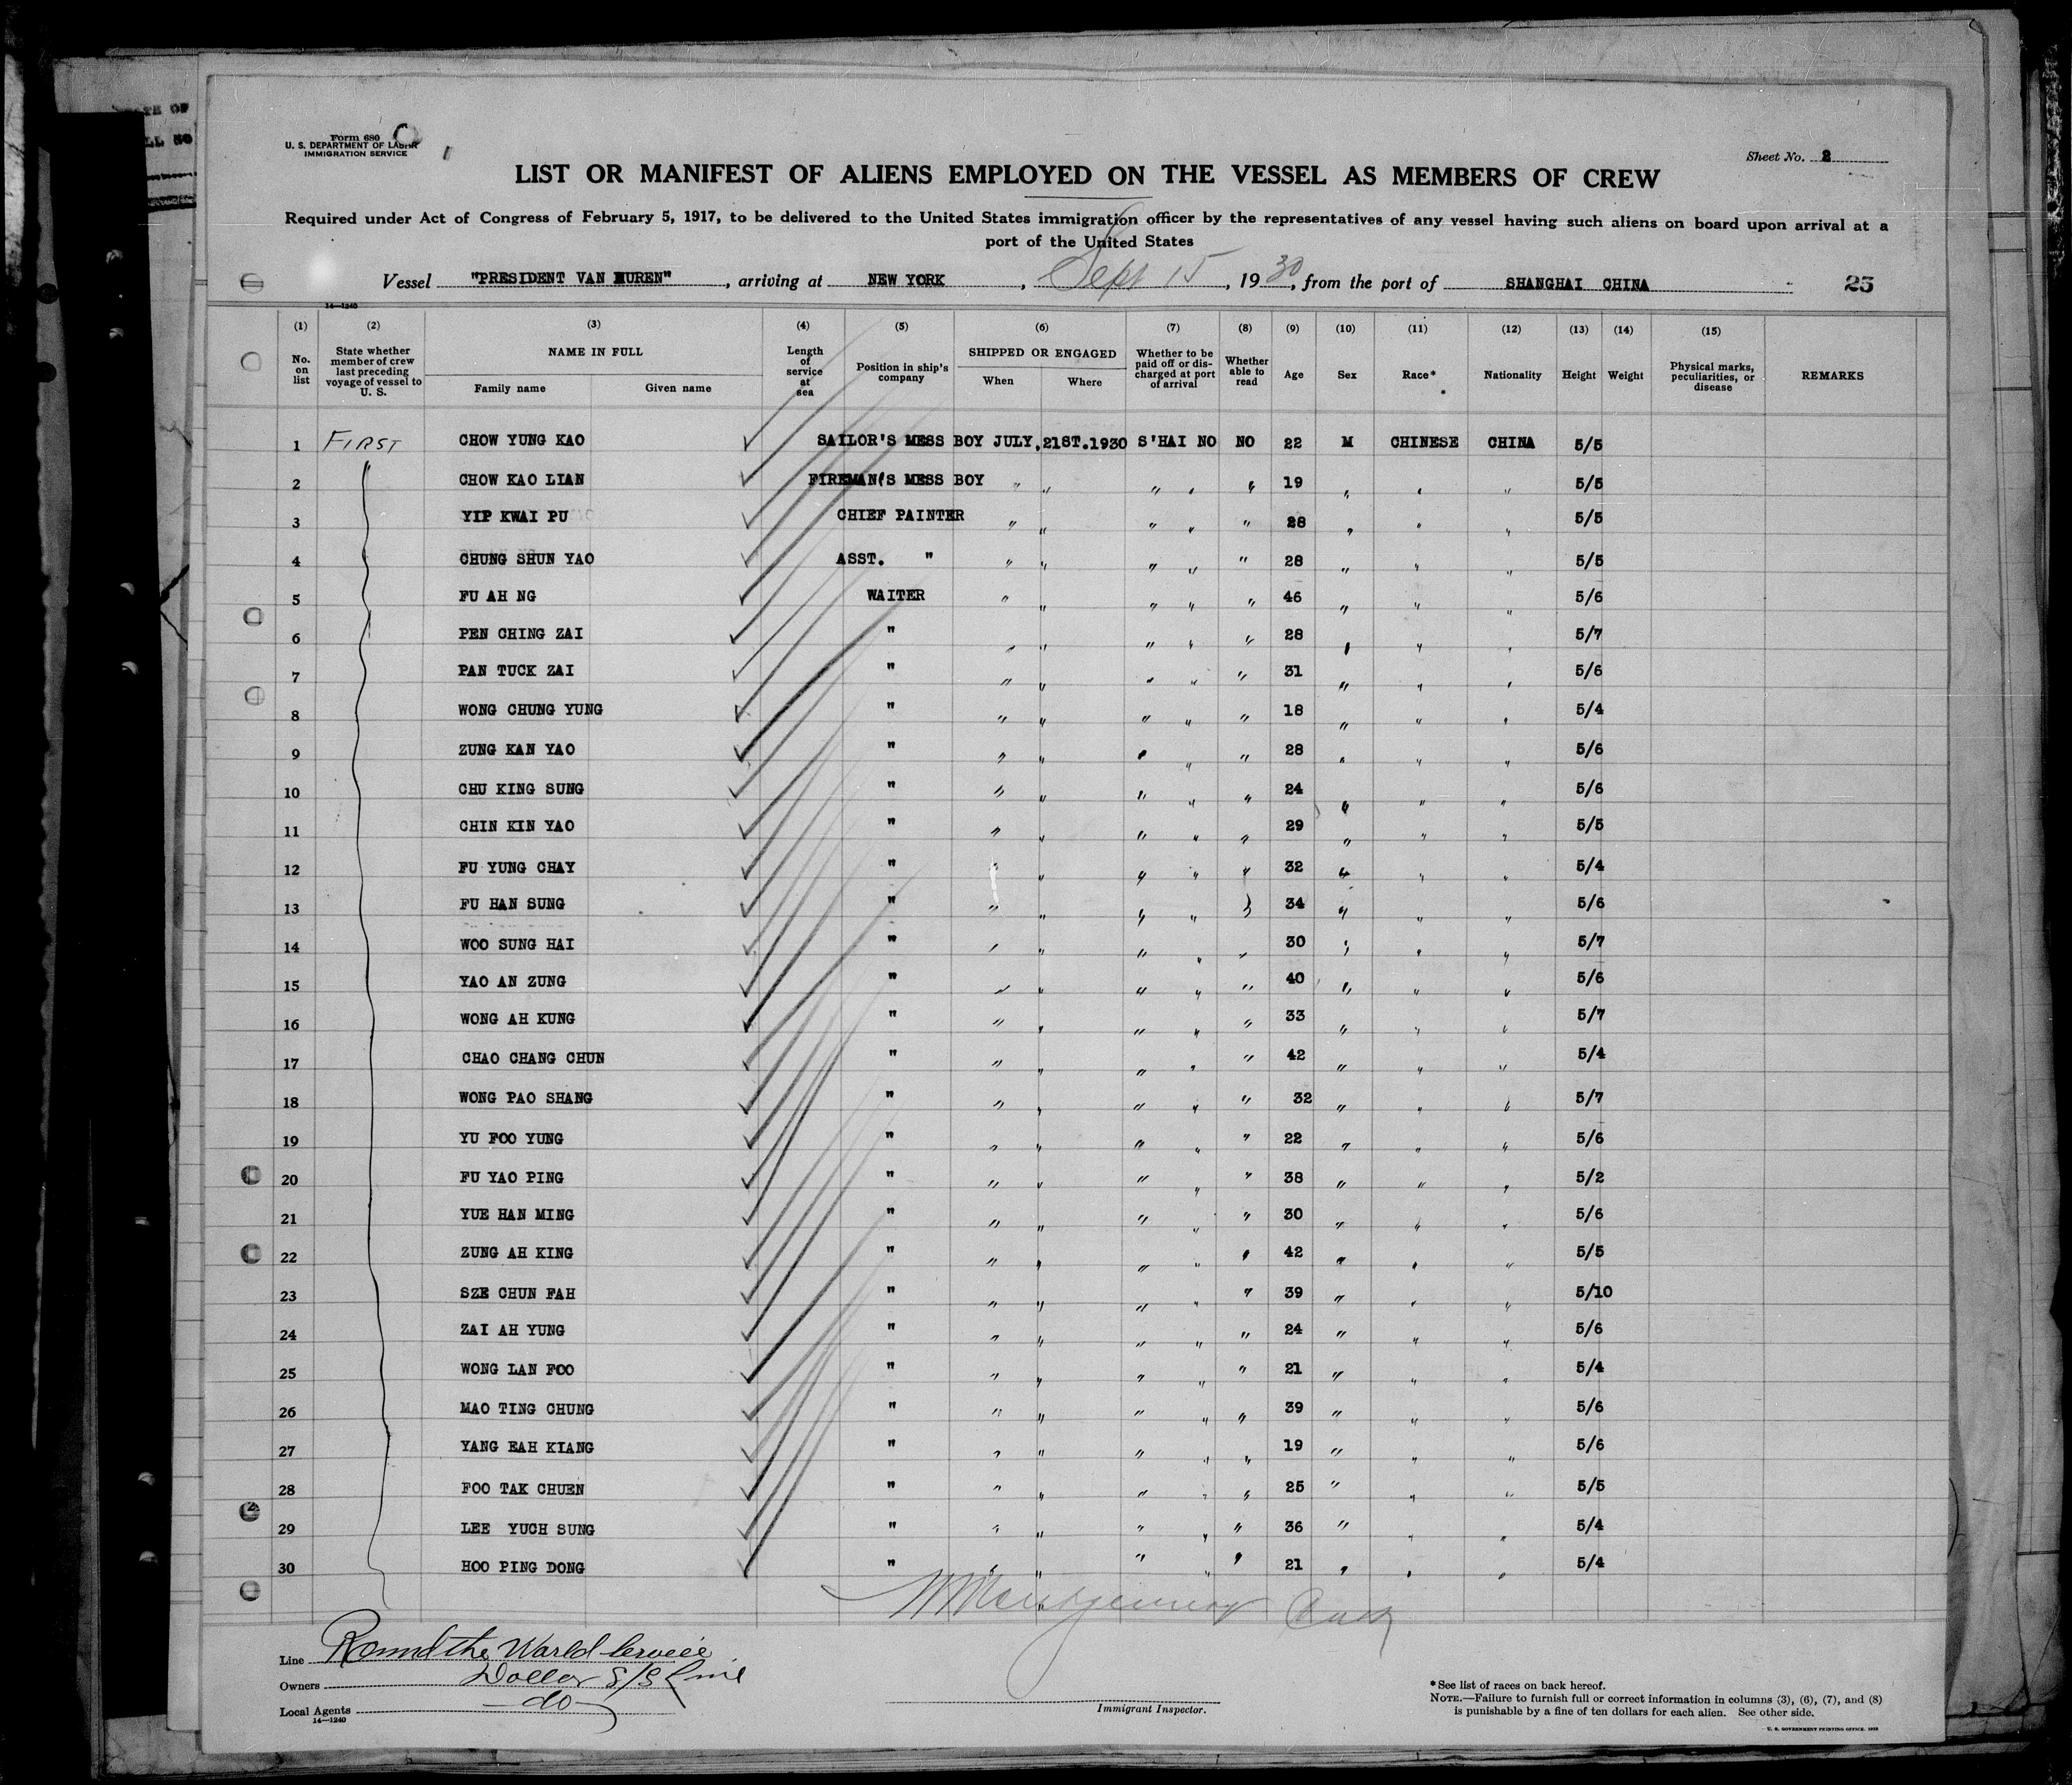 TE OF
LL NO
Form 680 C
U. S. DEPARTMENT OF LABOR
IMMIGRATION SERVICE
Sheet No. 2
LIST OR MANIFEST OF ALIENS EMPLOYED ON THE VESSEL AS MEMBERS OF CREW
Required under Act of Congress of February 5, 1917, to be delivered to the United States immigration officer by the representatives of any vessel having such aliens on board upon arrival at a
port of the United States
Vessel "PRESIDENT VAN BUREN", arriving at NEW YORK, Sept 15, 1930, from the port of SHANGHAI CHINA 25
14—1240
(1) (2) (3) (4) (5) (6) (7) (8) (9) (10) (11) (12) (13) (14) (15)
No. on list State whether member of crew last preceding voyage of vessel to U. S. NAME IN FULL Family name Given name Length of service at sea Position in ship's company SHIPPED OR ENGAGED When Where Whether to be paid off or discharged at port of arrival Whether able to read Age Sex Race* Nationality Height Weight Physical marks, peculiarities, or disease REMARKS
1 FIRST CHOW YUNG KAO SAILOR'S MESS BOY JULY,21ST.1930 S'HAI NO NO 22 M CHINESE CHINA 5/5
2 CHOW KAO LIAN FIREMAN'S MESS BOY " " " " " 19 " " " 5/5
3 YIP KWAI PU CHIEF PAINTER " " " " " 28 " " " 5/5
4 CHUNG SHUN YAO ASST. " " " " " " 28 " " " 5/5
5 FU AH NG WAITER " " " " " 46 " " " 5/6
6 PEN CHING ZAI " " " " " " 28 " " " 5/7
7 PAN TUCK ZAI " " " " " " 31 " " " 5/6
8 WONG CHUNG YUNG " " " " " " 18 " " " 5/4
9 ZUNG KAN YAO " " " " " " 28 " " " 5/6
10 CHU KING SUNG " " " " " " 24 " " " 5/6
11 CHIN KIN YAO " " " " " " 29 " " " 5/5
12 FU YUNG CHAY " " " " " " 32 " " " 5/4
13 FU HAN SUNG " " " " " " 34 " " " 5/6
14 WOO SUNG HAI " " " " " " 30 " " " 5/7
15 YAO AN ZUNG " " " " " " 40 " " " 5/6
16 WONG AH KUNG " " " " " " 33 " " " 5/7
17 CHAO CHANG CHUN " " " " " " 42 " " " 5/4
18 WONG PAO SHANG " " " " " " 32 " " " 5/7
19 YU FOO YUNG " " " " " " 22 " " " 5/6
20 FU YAO PING " " " " " " 38 " " " 5/2
21 YUE HAN MING " " " " " " 30 " " " 5/6
22 ZUNG AH KING " " " " " " 42 " " " 5/5
23 SZE CHUN FAH " " " " " " 39 " " " 5/10
24 ZAI AH YUNG " " " " " " 24 " " " 5/6
25 WONG LAN FOO " " " " " " 21 " " " 5/4
26 MAO TING CHUNG " " " " " " 39 " " " 5/6
27 YANG EAH KIANG " " " " " " 19 " " " 5/6
28 FOO TAK CHUEN " " " " " " 25 " " " 5/5
29 LEE YUCH SUNG " " " " " " 36 " " " 5/4
30 HOO PING DONG " " " " " " 21 " " " 5/4
Montgomery
Line Round the World Service
Owners Dollar S/S Line
Local Agents do
14—1240
Immigrant Inspector.
*See list of races on back hereof.
NOTE.—Failure to furnish full or correct information in columns (3), (6), (7), and (8)
is punishable by a fine of ten dollars for each alien. See other side.